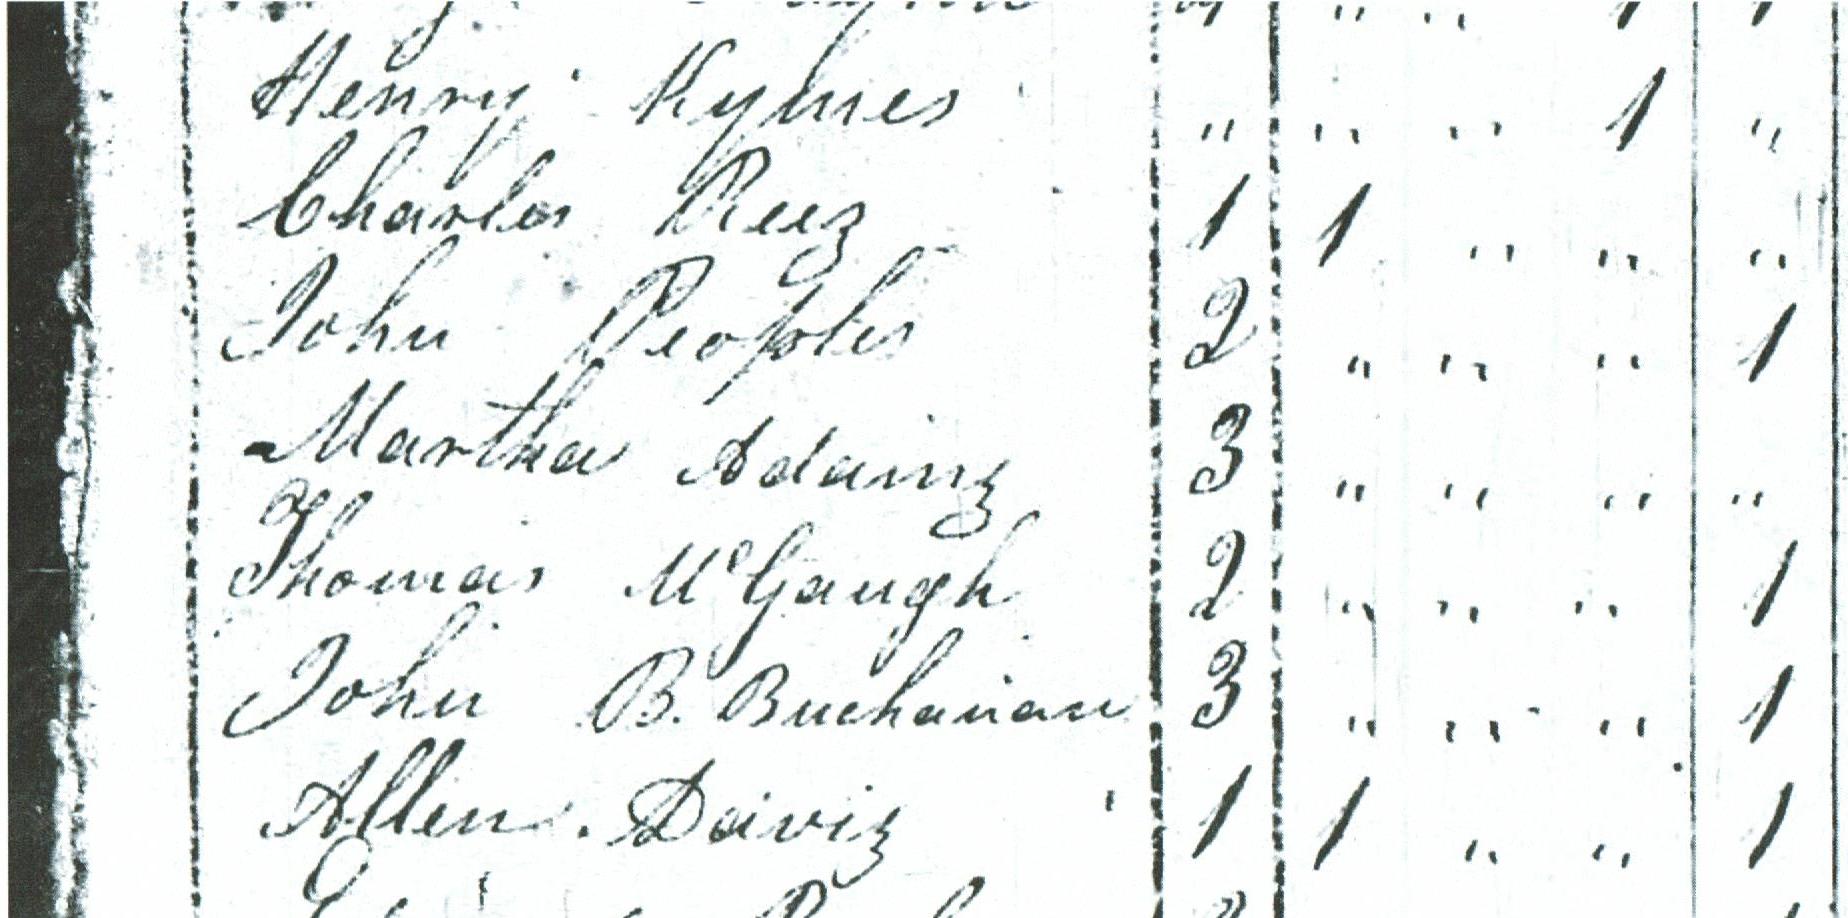 Henry Kymes " " " 1 "
Charles Reez 1 1 " " "
John Peoples 2 " " " 1
Martha Adamz 3 " " " "
Thomas McGaugh 2 " " " 1
John B. Buchanan 3 " " " 1
Allen Daviz 1 1 " " 1